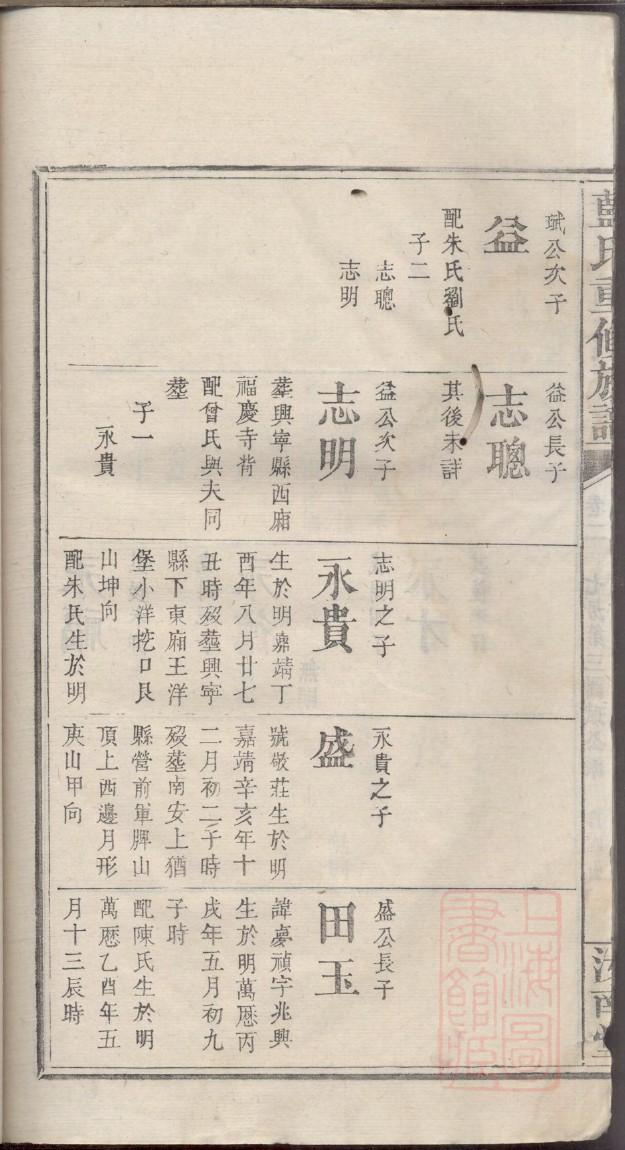 藍氏重修族譜
汝南堂
珷公次子
益
配朱氏劉氏
子二
志聰
志明
益公長子
志聰
其後未詳
益公次子
志明
塟興寧縣西廂
福慶寺背
配曾氏與夫同
塟
子一
永貴
志明之子
永貴
生於明嘉靖丁
酉年八月廿七
丑時歿塟興寧
縣下東廂王洋
堡小洋挖口艮
山坤向
配朱氏生於明
永貴之子
盛
號敬莊生於明
嘉靖辛亥年十
二月初二子時
歿塟南安上猶
縣營前軍牌山
頂上西邊月形
庚山甲向
盛公長子
田玉
諱慶禎字兆興
生於明萬厯丙
戌年五月初九
子時
配陳氏生於明
萬厯乙酉年五
月十三辰時
上海圖
書館藏